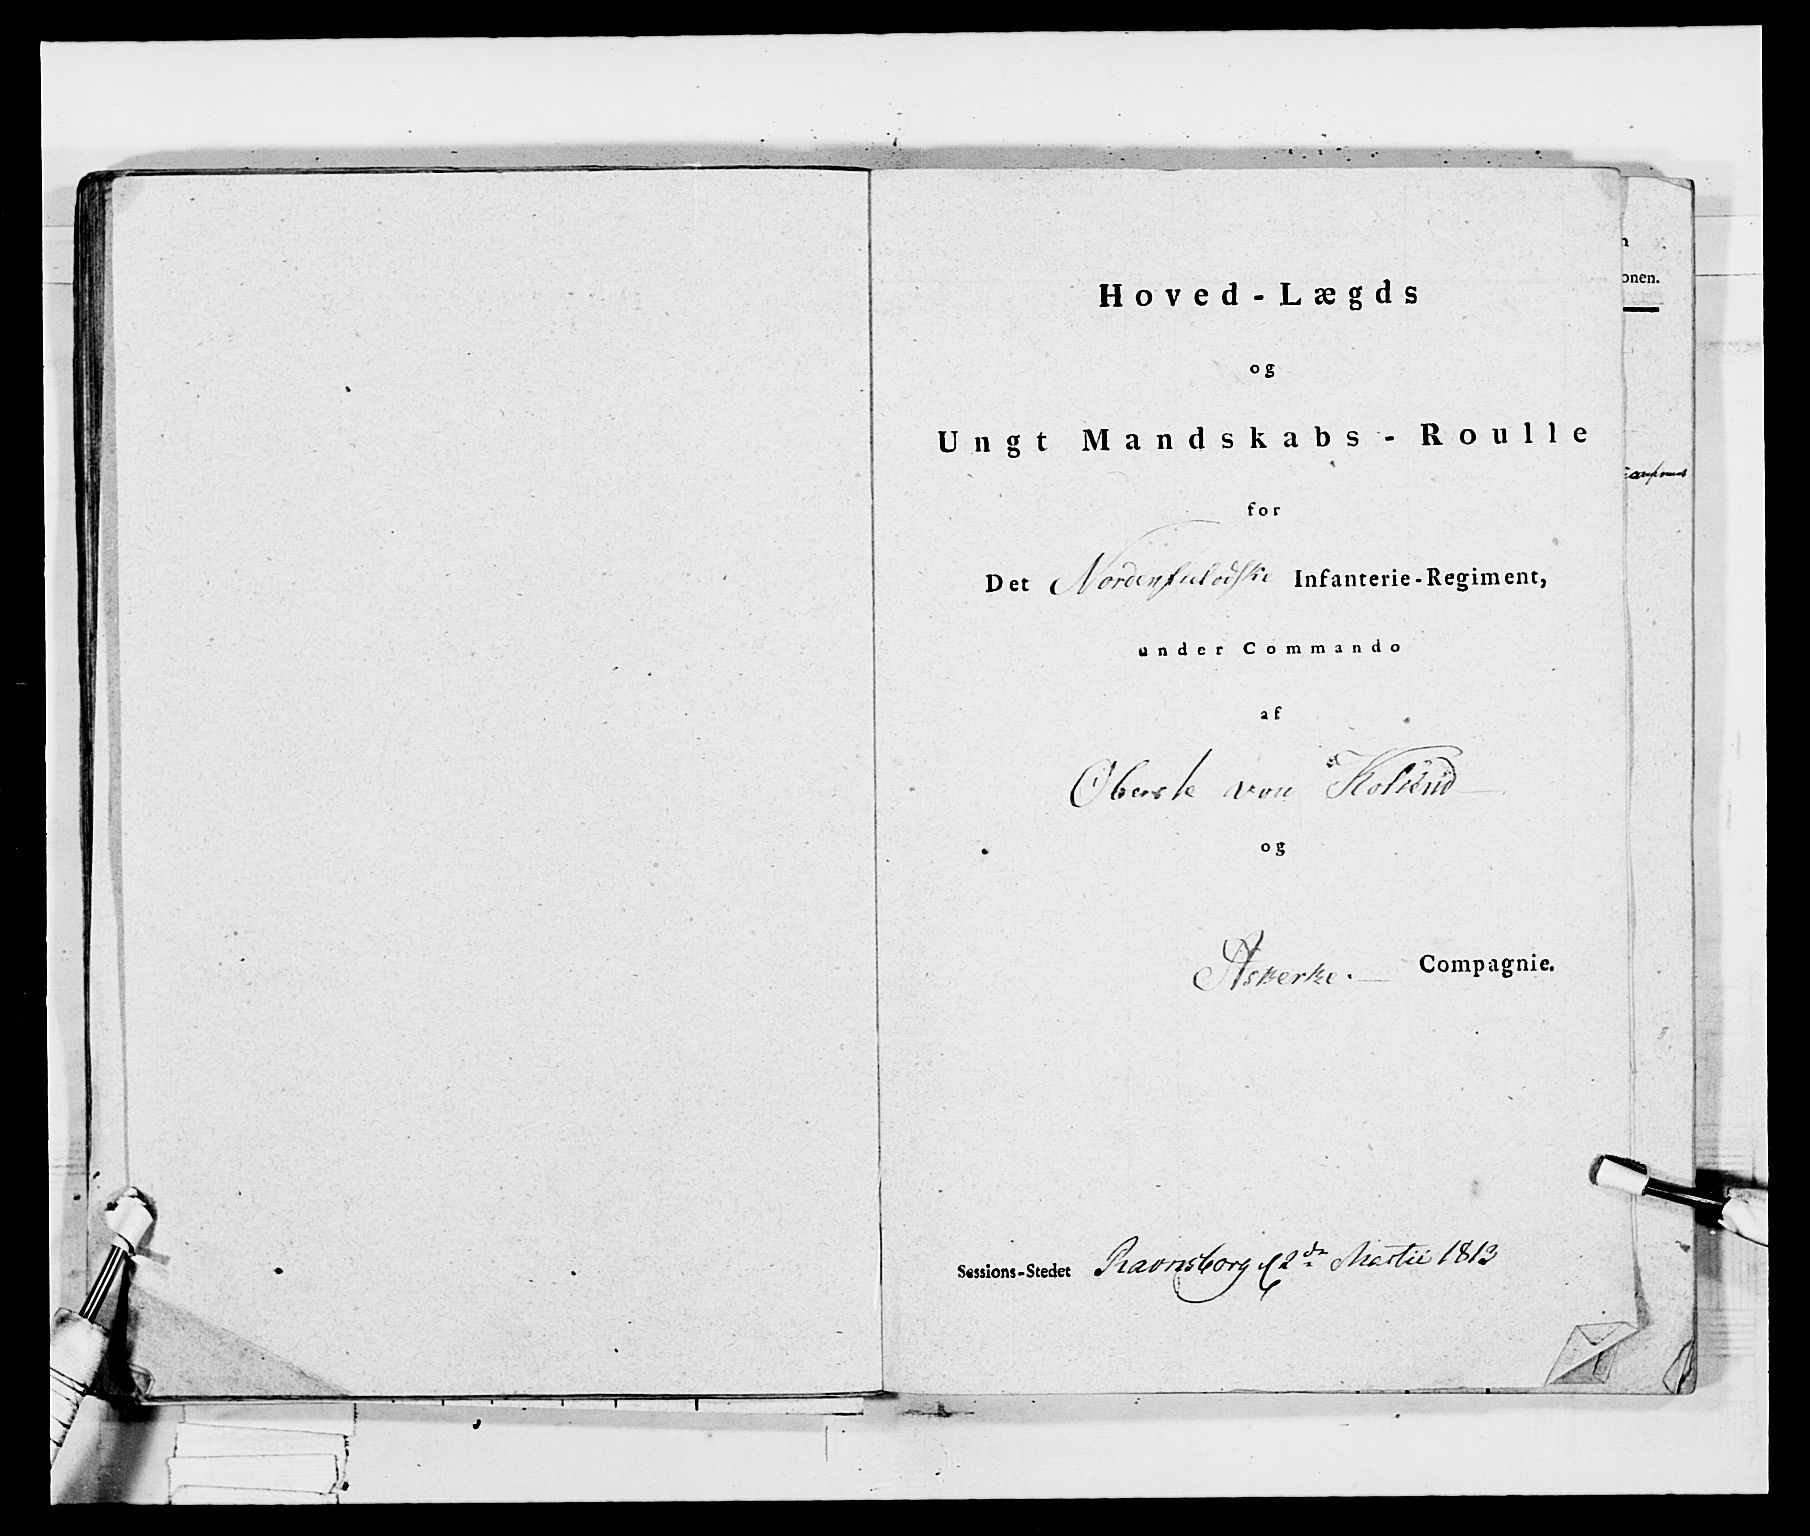 Hoved-Lægds
og
Ungt Mandskabs-Roulle
for
Det Nordenfieldske Infanterie-Regiment,
under Commando
af
Oberste von
og
Askerske Compagnie.
Sessions-Stedet Ravnsborg d 2de Martii 1813
onen.